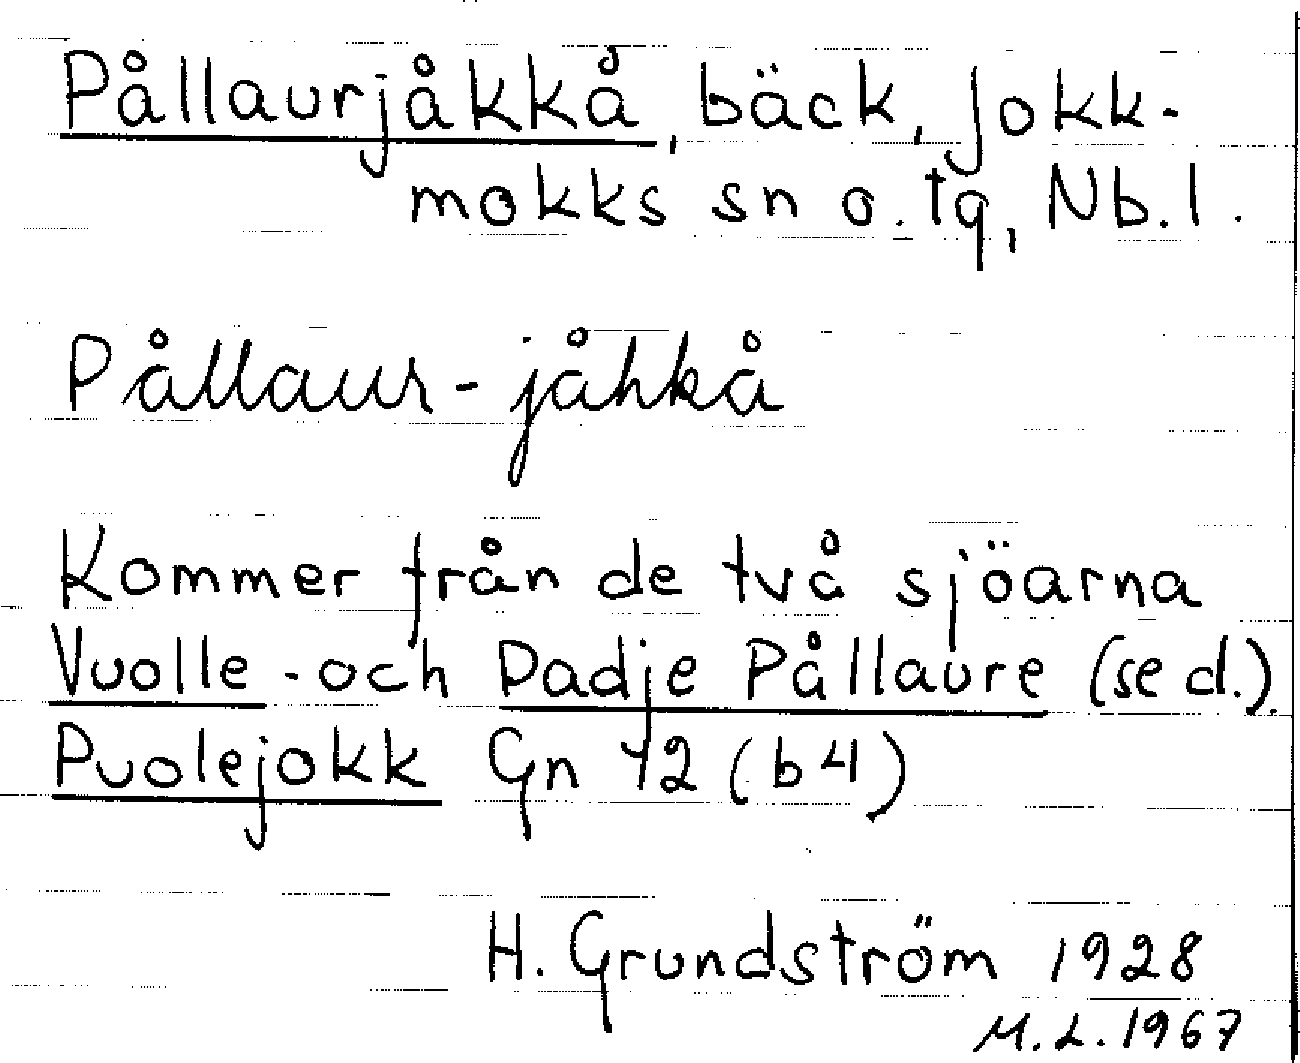 Pållaurjåkkå, bäck, Jokk-
mokks sn o. tg, Nb. l.
Pållaur-jåhkå
Kommer från de två sjöarna
Vuolle- och Dadje Pållaure (se d.).
Puolejokk Gn 42 (b4)
H. Grundström 1928
M. L. 1967